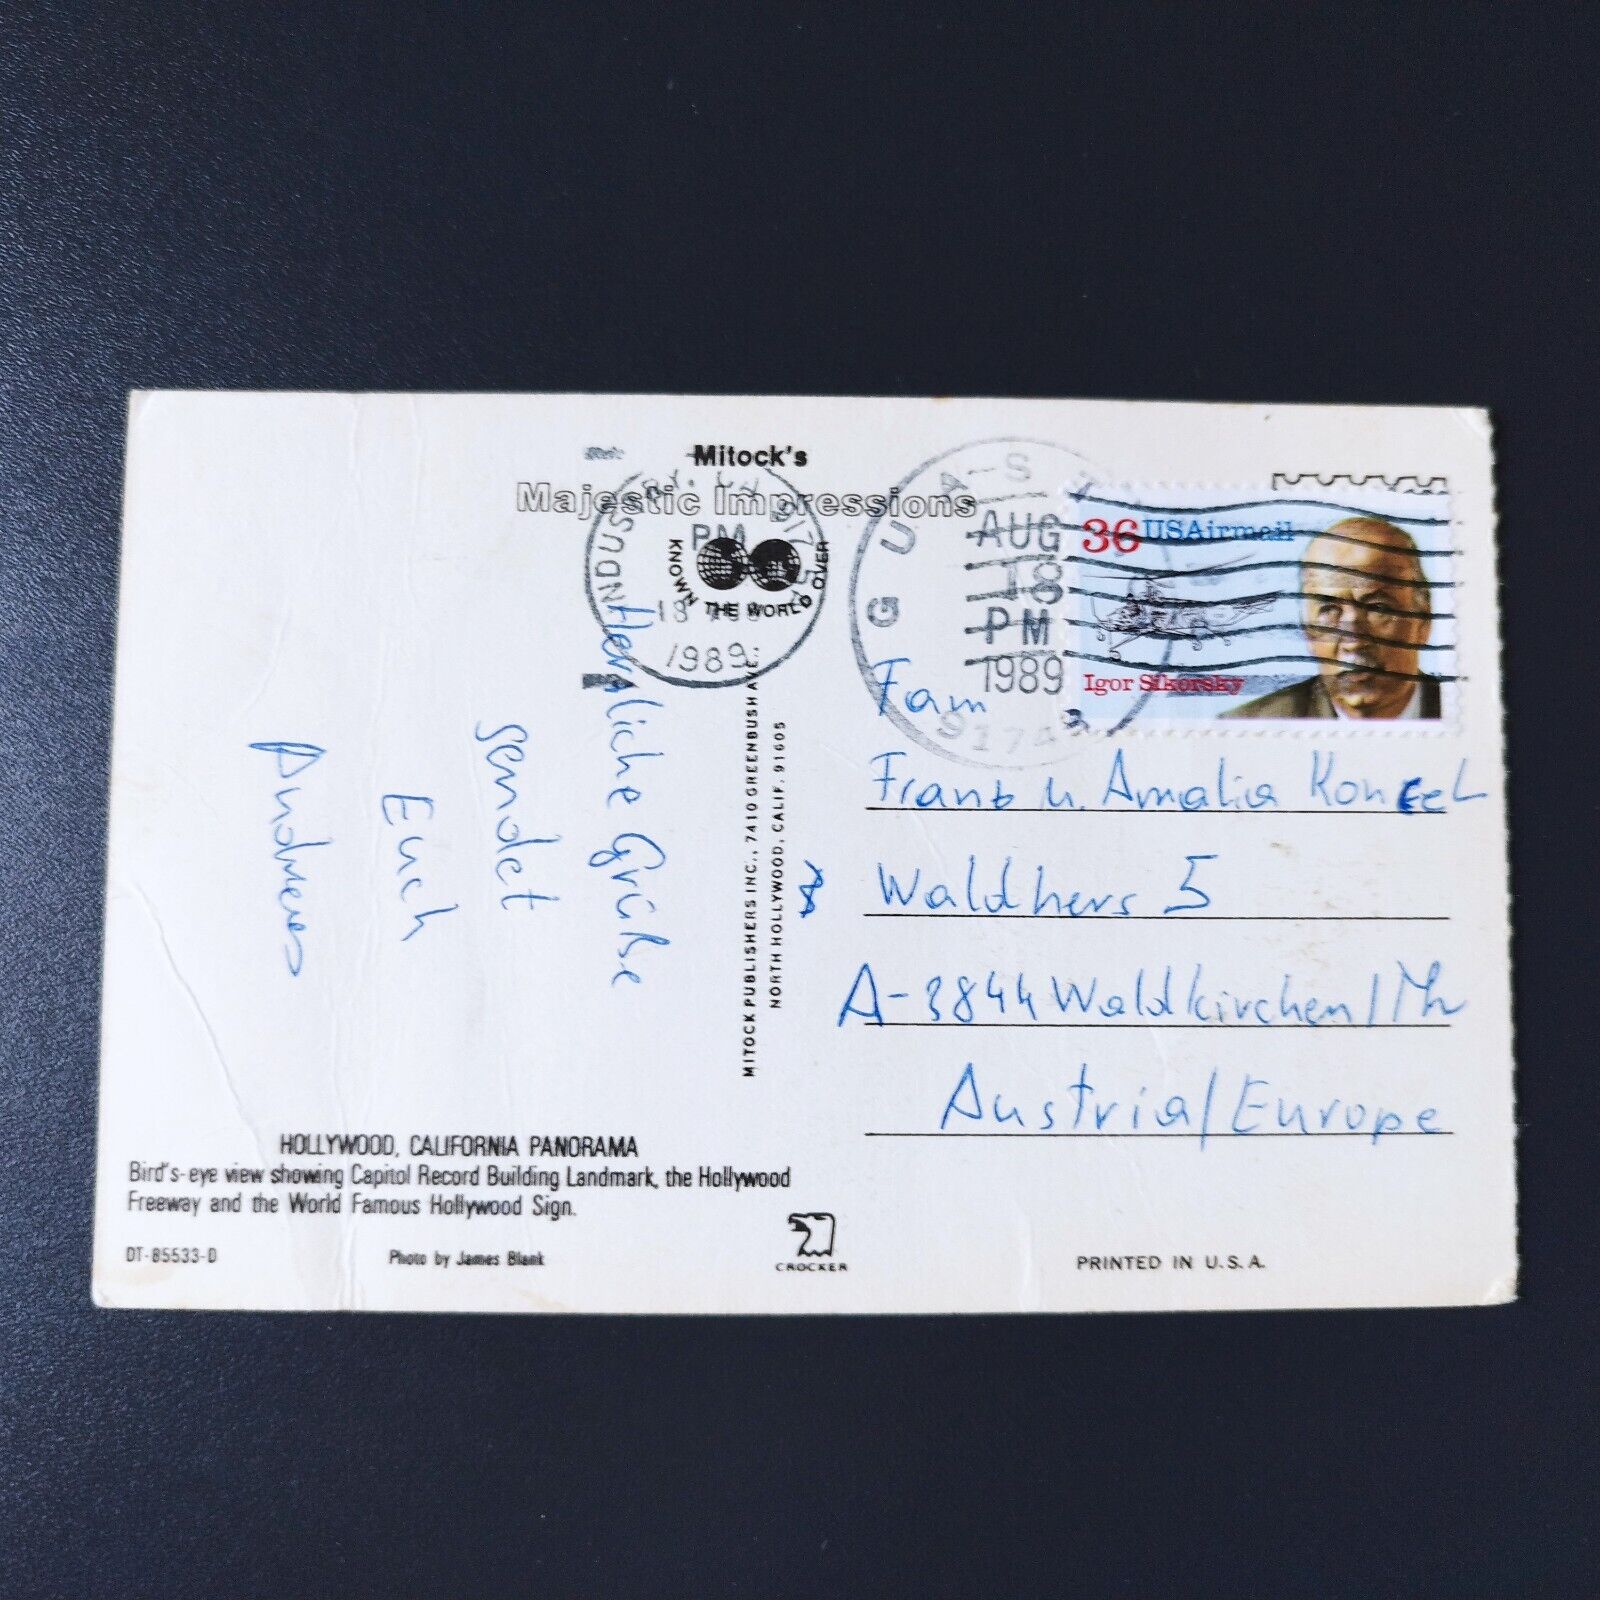 Mitock's
Majestic Impressions
KNOWN THE WORLD OVER
PM
1989
AUG
18
PM
1989
36 USAirmail
Igor Sikorsky
Herzliche Grüße
sendet
Euch
Andreas
MITOCK PUBLISHERS INC., 7410 GREENBUSH AVE.,
NORTH HOLLYWOOD, CALIF. 91605
Fam
Franz u. Amalia
Waldhers 5
A-3844 Waldkirchen/Th
Austria/Europe
HOLLYWOOD, CALIFORNIA PANORAMA
Bird's-eye view showing Capitol Record Building Landmark, the Hollywood
Freeway and the World Famous Hollywood Sign.
DT-85533-D
Photo by James Blank
CROCKER
PRINTED IN U.S.A.